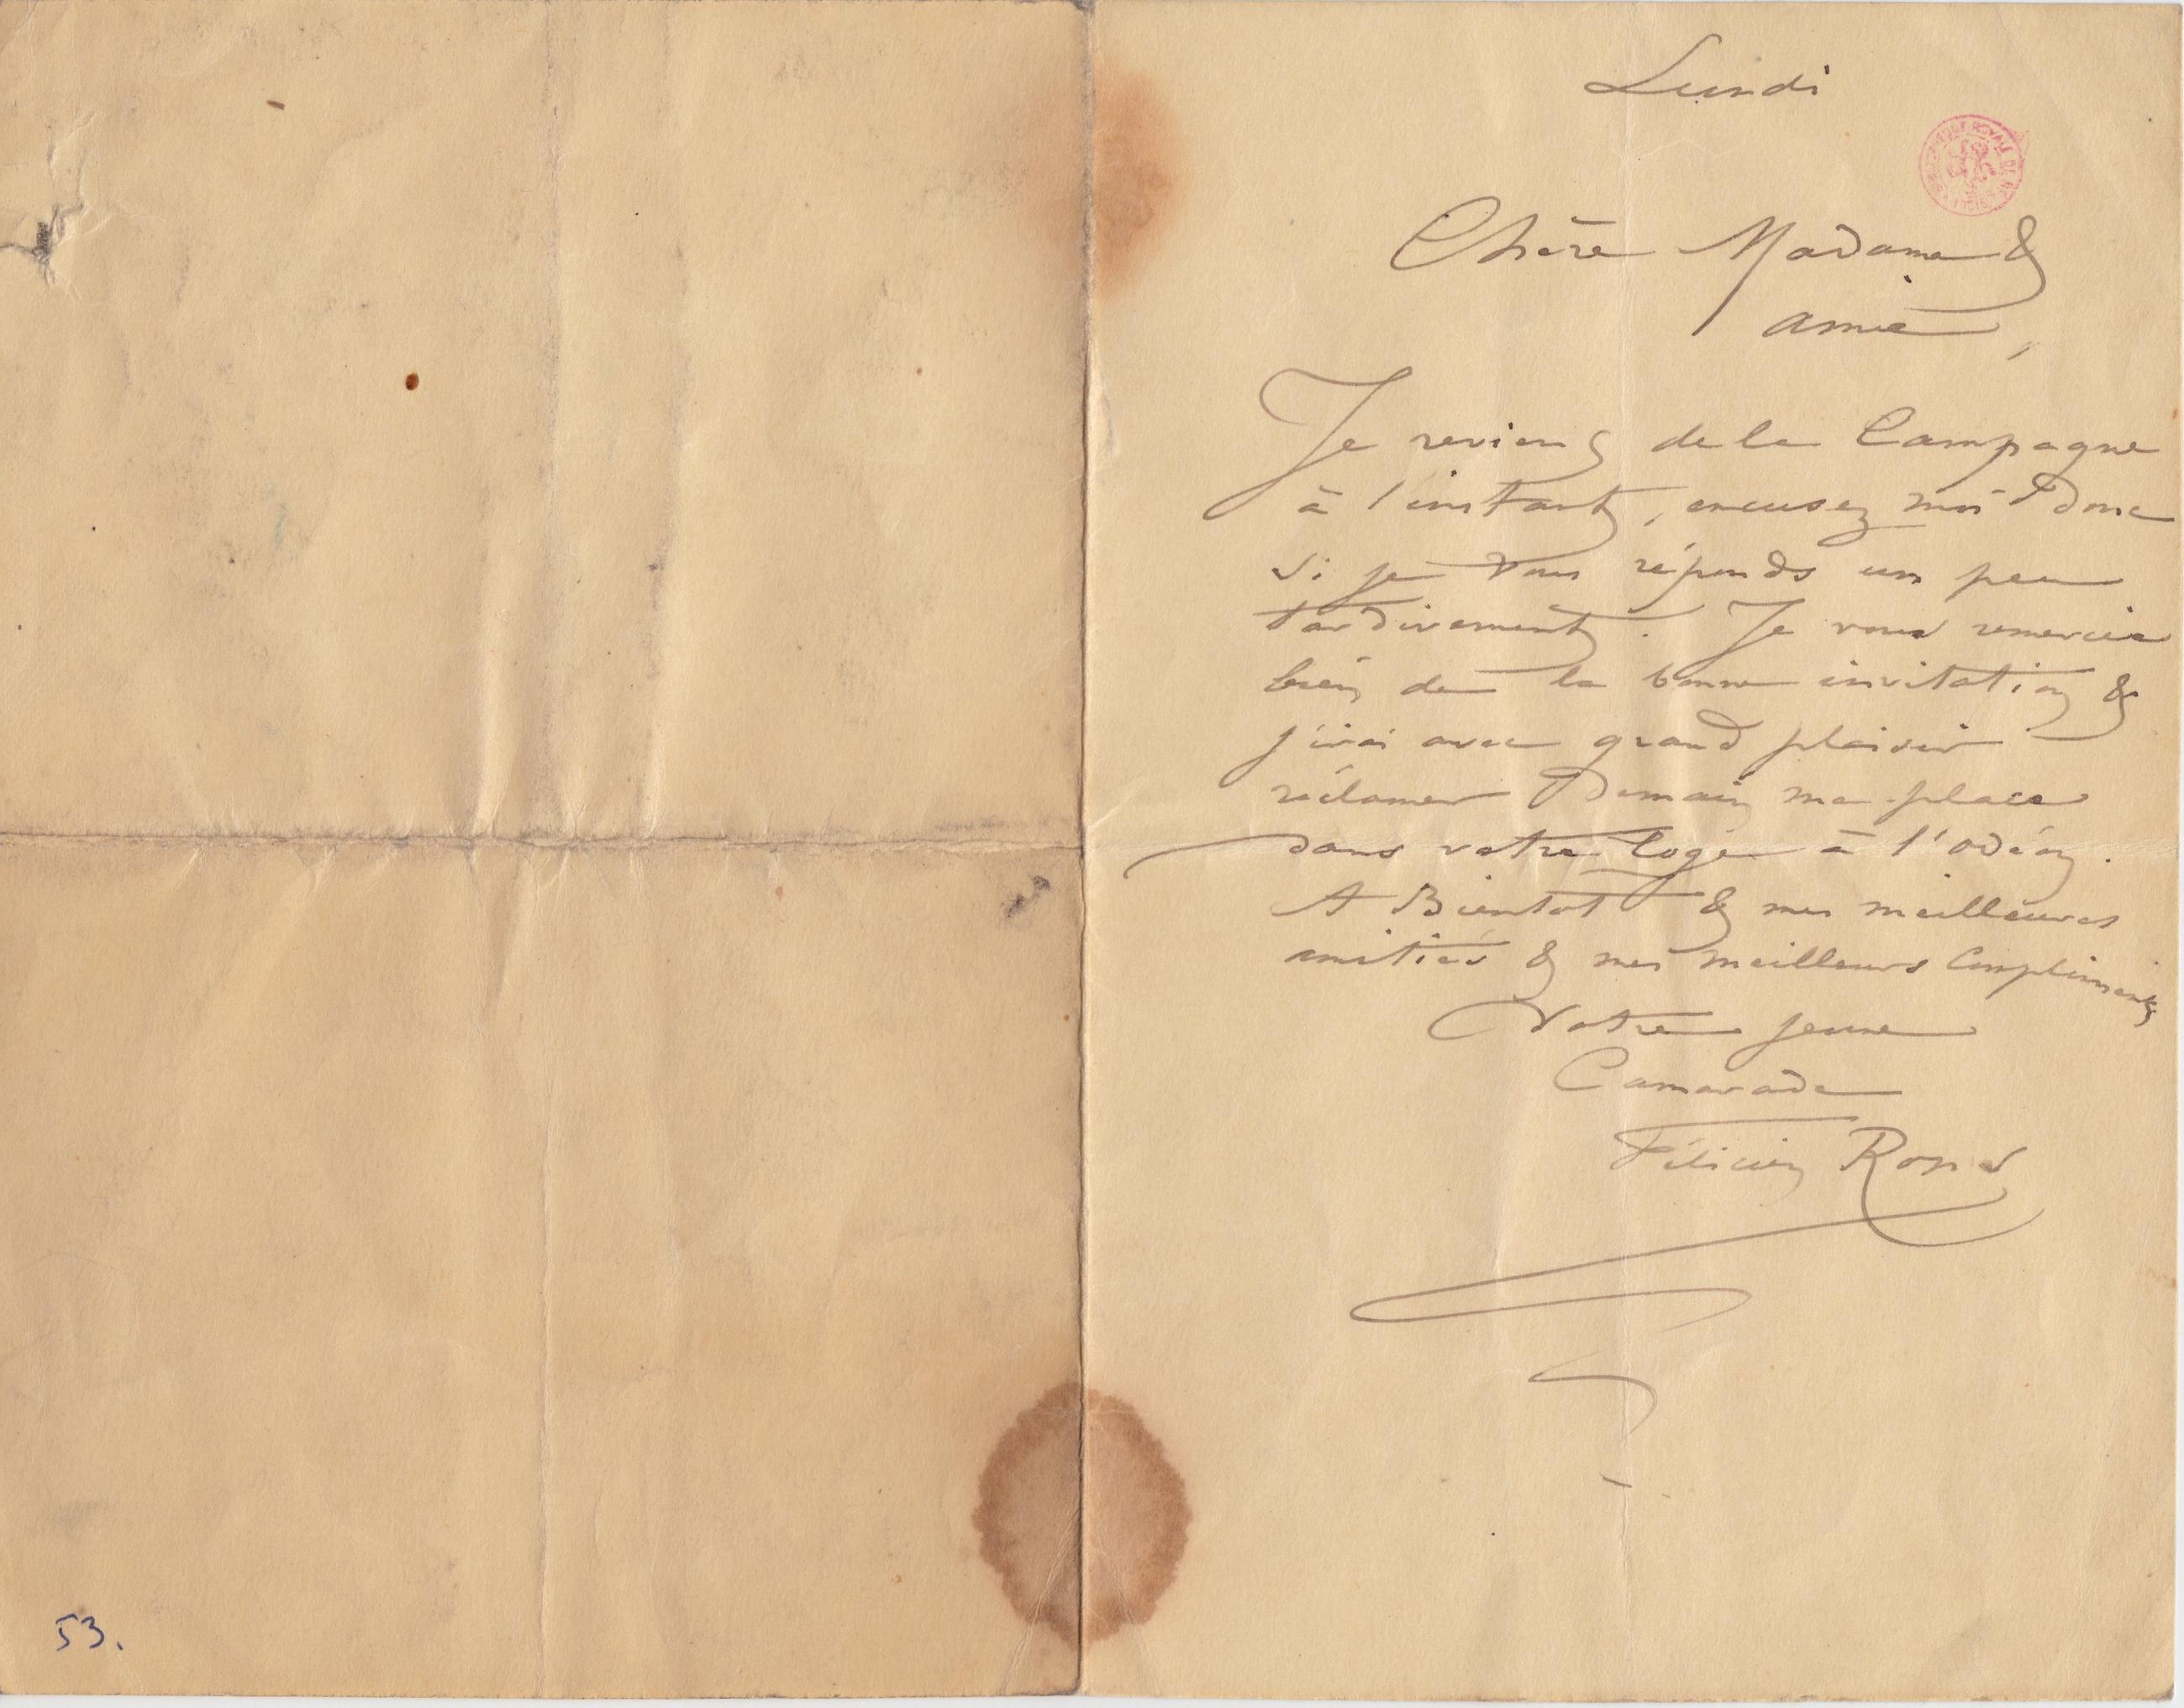 Lundi
Chère Madame &
amie,
Je reviens de la Campagne
à l'instant, excusez moi donc
si je vous réponds un peu
tardivement. Je vous remercie
bien de la bonne invitation &
j'irai avec grand plaisir
réclamer Demain ma place
dans votre loge à l'odéon.
A Bientot & mes meilleures
amitiés & mes meilleurs Compliments
Votre jeune
Camarade
Félicien Rops
53.